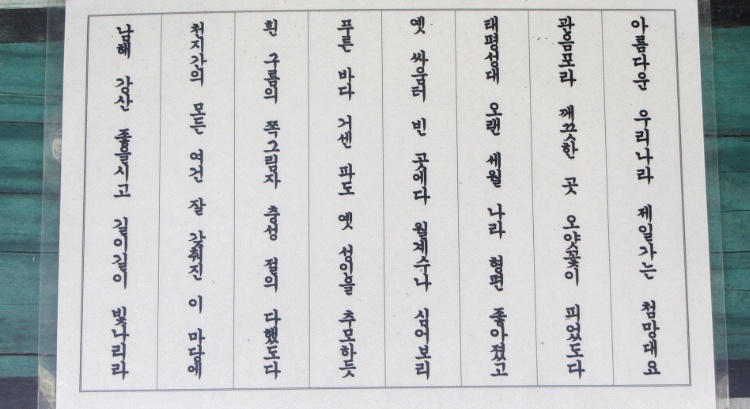 아름다운 우리나라 제일가는 첨망대요
관음포라 깨끗한 곳 오얏꽃이 피었도다
태평성대 오랜 세월 나라 형편 좋아졌고
옛 싸움터 빈 곳에다 월계수나 심어보리
푸른 바다 거센 파도 옛 성인을 추모하듯
흰 구름의 쪽그림자 충성 절의 다했도다
천지간의 모든 여건 잘 갖춰진 이 마당에
남해 강산 좋을시고 길이길이 빛나리라